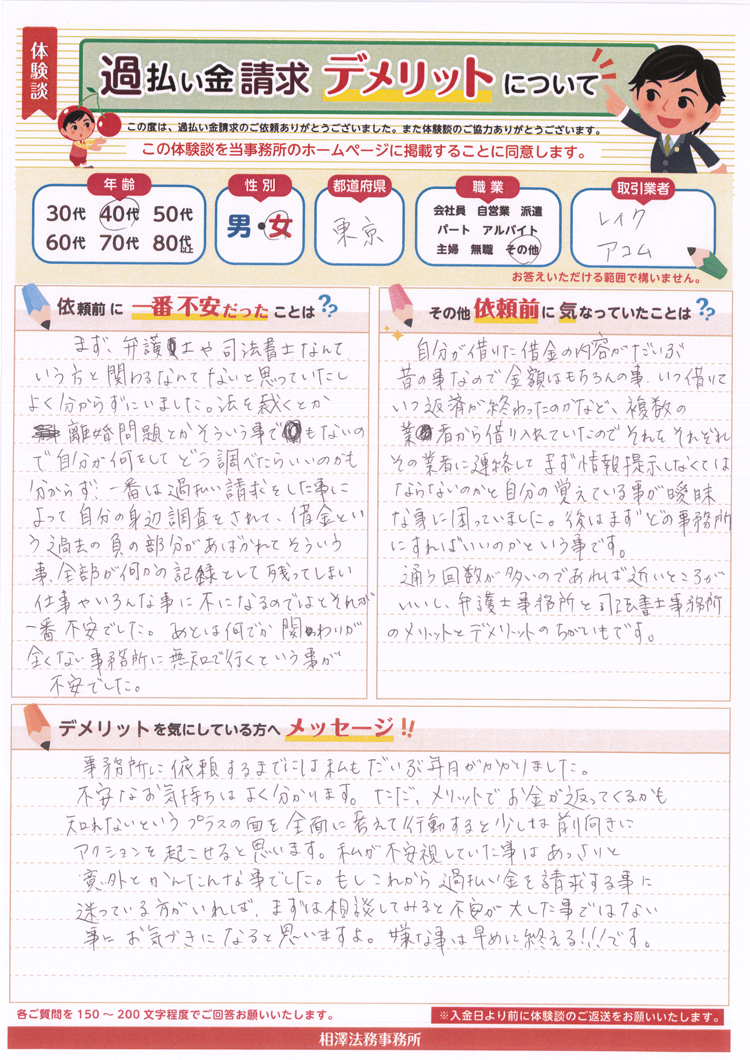 体験談
過払い金請求 デメリットについて
この度は、過払い金請求のご依頼ありがとうございました。また体験談のご協力ありがとうございます。
この体験談を当事務所のホームページに掲載することに同意します。
年齢
30代 40代 50代
60代 70代 80代以上
性別
男・女
都道府県
東京
職業
会社員 自営業 派遣
パート アルバイト
主婦 無職 その他
取引業者
レイク
アコム
お答えいただける範囲で構いません。
依頼前に一番不安だったことは??
まず、弁護士や司法書士なんて
いう方と関わるなんてないと思っていたし
よく分からずにいました。法を裁くとか
離婚問題とかそういう事でもないの
で自分が何をしてどう調べたらいいのかも
分からず、一番は過払い請求をした事に
よって自分の身辺調査をされて、借金とい
う過去の負の部分があばかれてそういう
事、全部が何かの記録として残ってしまい
仕事やいろんな事に不になるのではとそれが
一番不安でした。あとは何でか関わりが
全くない事務所に無知で行くという事が
不安でした。
その他依頼前に気なっていたことは??
自分が借りた借金の内容がだいぶ
昔の事なので金額はもちろんの事、いつ借りて
いつ返済が終わったのかなど、複数の
業者から借り入れていたのでそれをそれぞれ
その業者に連絡してまず情報提示しなくては
ならないのかと自分の覚えている事が曖昧
な事に困っていました。後はまずどの事務所
にすればいいのかという事です。
通う回数が多いのであれば近いところが
いいし、弁護士事務所と司法書士事務所
のメリットとデメリットのちがいもです。
デメリットを気にしている方へメッセージ!!
事務所に依頼するまでには私もだいぶ年月がかかりました。
不安なお気持ちはよく分かります。ただ、メリットでお金が返ってくるかも
知れないというプラスの面を全面に考えて行動すると少しは前向きに
アクションを起こせると思います。私が不安視していた事はあっさりと
意外とかんたんな事でした。もしこれから過払い金を請求する事に
迷っている方がいれば、まずは相談してみると不安が大した事ではない
事にお気づきになると思いますよ。嫌な事は早めに終える!!!です。
各ご質問を150～200文字程度でご回答お願いいたします。
※入金日より前に体験談のご返送をお願いいたします。
相澤法務事務所